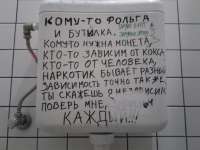 КОМУ-ТО ФОЛЬГА
И БУТЫЛКА.
КОМУТО НУЖНА МОНЕТА,
КТО-ТО ЗАВИСИМ ОТ КОКСА
КТО-ТО ОТ ЧЕЛОВЕКА,
НАРКОТИК БЫВАЕТ РАЗНЫЙ
ЗАВИСИМОСТЬ ТОЧНО ТАКЖЕ,
ТЫ СКАЖЕШЬ Я НЕЗАВИСИМ
ПОВЕРЬ МНЕ,
КАЖДЫЙ...